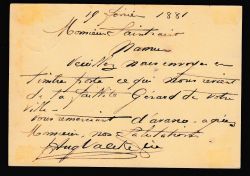 19 février 1881
Monsieur
Namur
Veuillez nous envoyer en
timbre poste ce qui nous revient
de la faillite Gérard de votre
ville
vous remerciant d'avance agréez
Monsieur, nos salutations